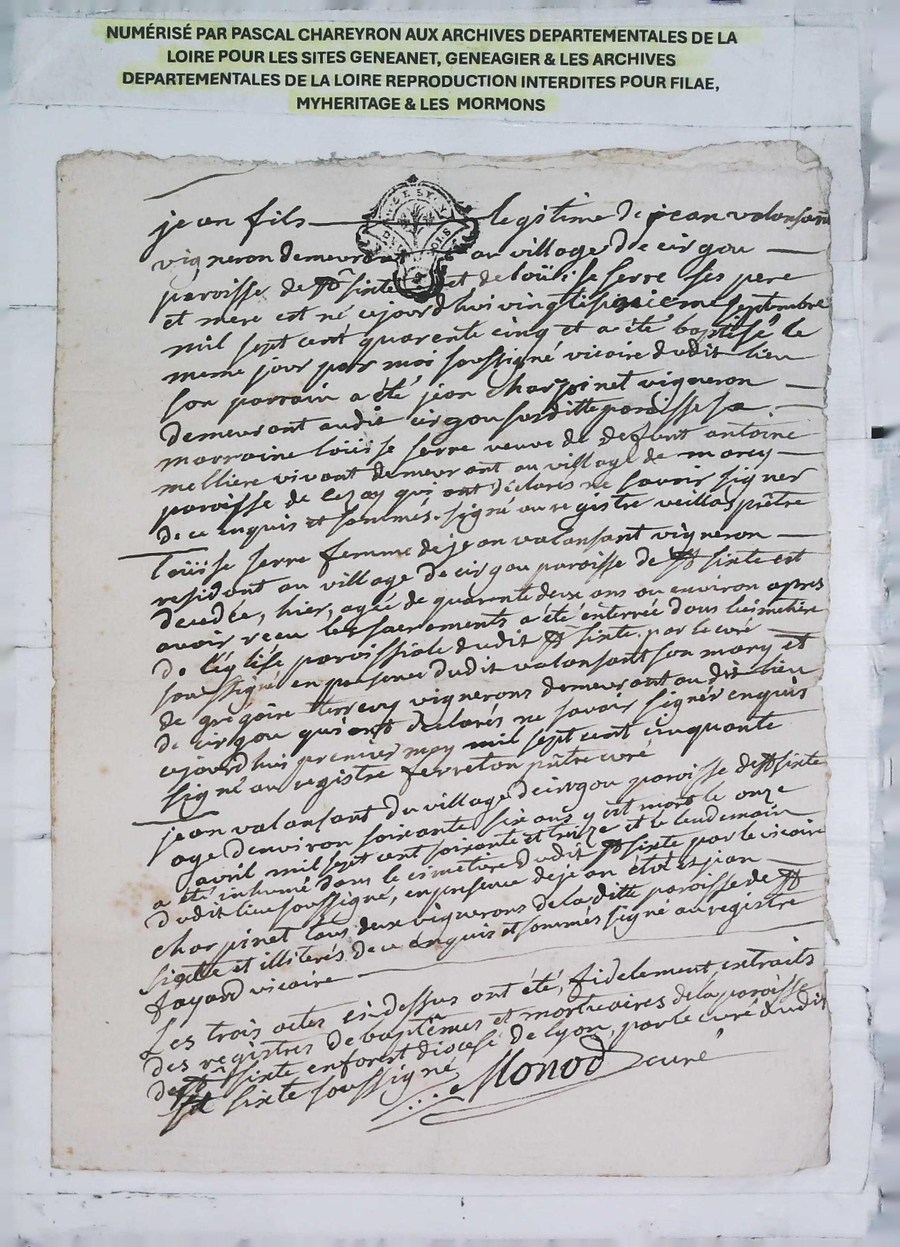 NUMÉRISÉ PAR PASCAL CHAREYRON AUX ARCHIVES DEPARTEMENTALES DE LA
LOIRE POUR LES SITES GENEANET, GENEAGIER & LES ARCHIVES
DEPARTEMENTALES DE LA LOIRE REPRODUCTION INTERDITES POUR FILAE,
MYHERITAGE & LES MORMONS
jean fils legitime de jean valansant
vigneron demeurant au village de cirgou
paroisse de St sixte et de loüise serre ses pere
et mere est né cejourdhui vingt septembre
mil sept cent quarente cinq et a été baptisé le
meme jour par moi soussigné vicaire dudit lieu
son parrain a été jean charpinet vigneron
demeurant audit cirgou susditte paroisse sa
marraine loüise serre veuve de defunt antoine
melliere vivant demeurant au village de marcy
paroisse de lezay qui ont déclarés ne savoir signer
de ce enquis et sommés. signé au registre veillas prêtre
loüise serre femme de jean valansant vigneron
residant au village de cirgou paroisse de St sixte est
decedée, hier, agée de quarante deux ans ou environ apres
avoir recu les sacrements a été enterrée dans le cimetiere
de l'église paroissiale dudit St sixte par le curé
soussigné en presence dudit valansant son mary et
de gregoire terrevy vignerons demeurant audit lieu
de cirgou qui ont declarés ne savoir signer enquis
cejourdhui premier may mil sept cent cinquante
signé au registre ferreton prêtre curé
jean valansant du village de cirgou paroisse de St sixte
age denviron soixante six ans y est mort le onze
avril mil sept cent soixante et treize et le lendemain
a été inhumé dans le cimetiere dudit St sixte par le vicaire
dudit lieu soussigné, en presence de jean et jean
charpinet tous deux vignerons de la ditte paroisse de St
sixte et illiterés de ce enquis et sommés signé au registre
fayard vicaire
Les trois actes ci-dessus ont été, fidelement extraits
des registres de baptêmes et mortuaires de la paroisse
de St sixte en forest diocése de lyon, par le curé dudit
St sixte soussigné
Monod curé